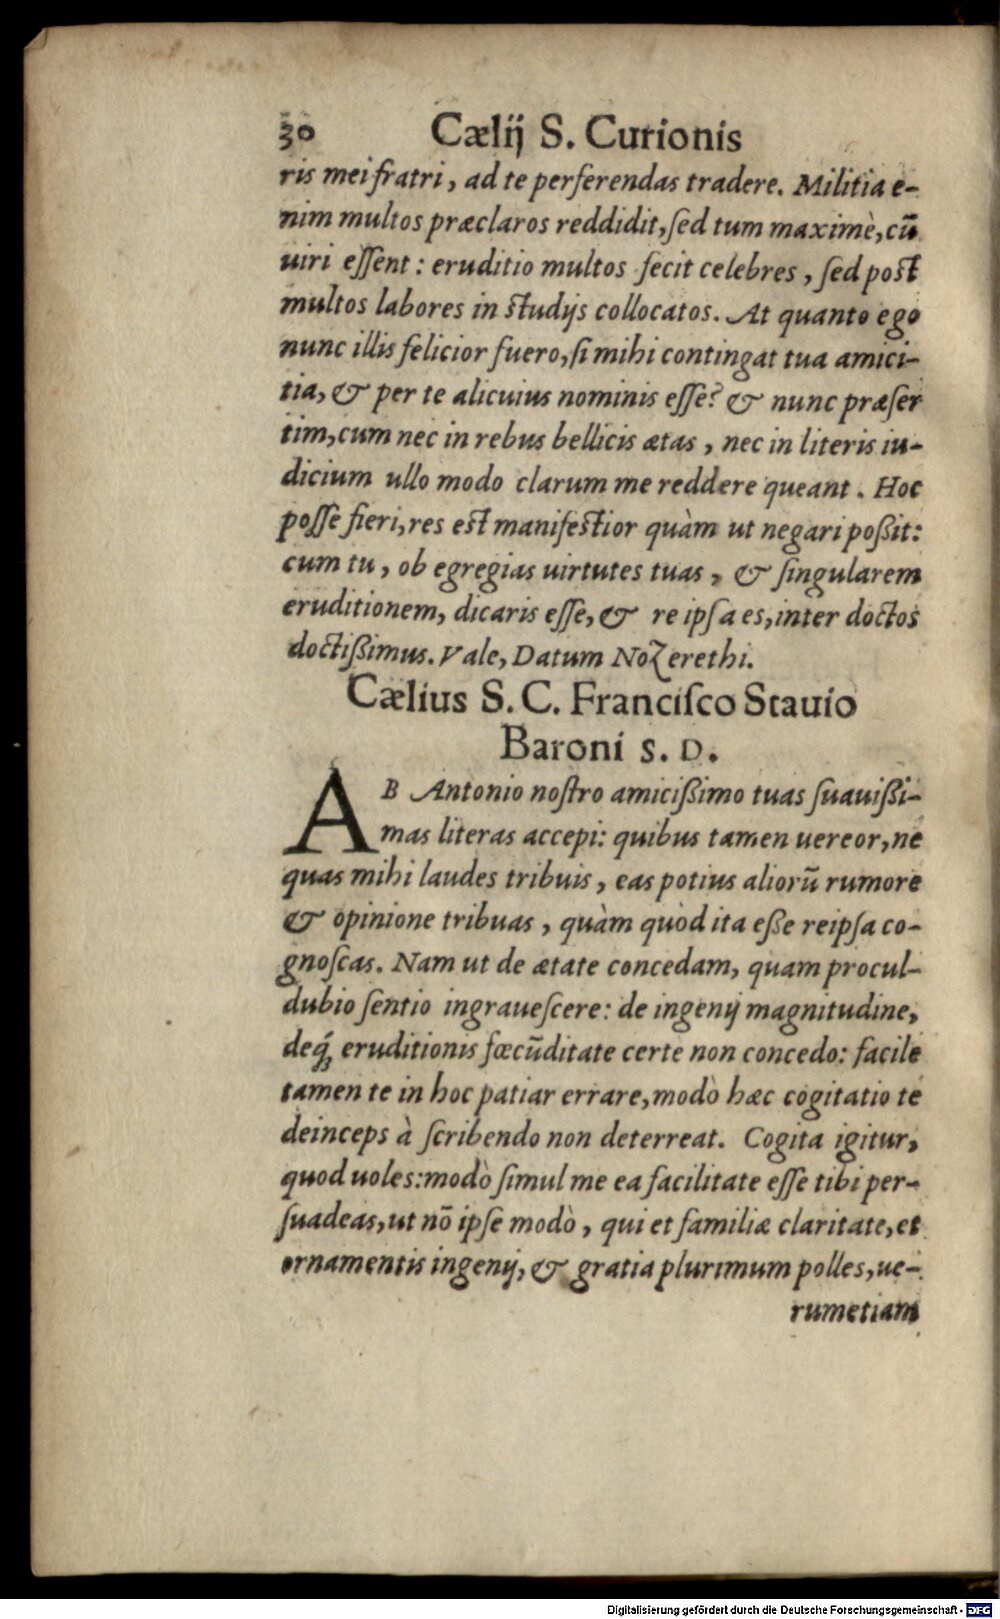 30 Cælij S. Curionis
ris mei fratri, ad te perferendas tradere. Militia e-
nim multos præclaros reddidit, ſed tum maximè, cũ
uiri eſſent: eruditio multos fecit celebres, ſed poſt
multos labores in ſtudijs collocatos. At quanto ego
nunc illis felicior fuero, ſi mihi contingat tua amici-
tia, & per te alicuius nominis eſſe? & nunc præſer
tim, cum nec in rebus bellicis ætas, nec in literis iu-
dicium ullo modo clarum me reddere queant. Hoc
poſſe fieri, res eſt manifeſtior quàm ut negari poßit:
cum tu, ob egregias uirtutes tuas, & ſingularem
eruditionem, dicaris eſſe, & re ipſa es, inter doctos
doctißimus. Vale, Datum Nozerethi.
Cælius S. C. Franciſco Stauio
Baroni S. D.
AB Antonio noſtro amicißimo tuas ſuauißi-
mas literas accepi: quibus tamen uereor, ne
quas mihi laudes tribuis, eas potius aliorũ rumore
& opinione tribuas, quàm quòd ita eße reipſa co-
gnoſcas. Nam ut de ætate concedam, quam procul-
dubio ſentio ingraueſcere: de ingenij magnitudine,
deq́; eruditionis fœcũditate certe non concedo: facile
tamen te in hoc patiar errare, modò hæc cogitatio te
deinceps à ſcribendo non deterreat. Cogita igitur,
quod uoles: modò ſimul me ea facilitate eſſe tibi per-
ſuadeas, ut nõ ipſe modò, qui et familiæ claritate, et
ornamentis ingenij, & gratia plurimum polles, ue-
rumetiam
Digitalisierung gefördert durch die Deutsche Forschungsgemeinschaft - DFG